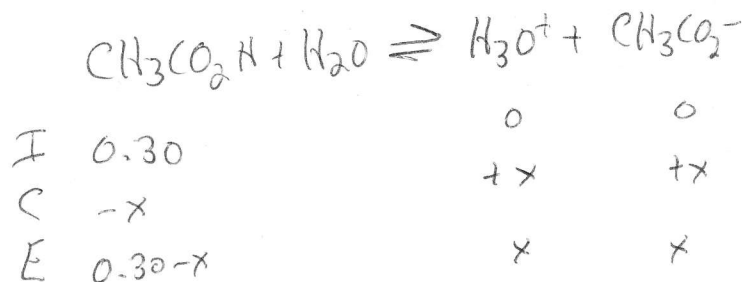 CH₃CO₂H + H₂O ⇌ H₃O⁺ + CH₃CO₂⁻
I 0.30 0 0
C -x +x +x
E 0.30-x x x